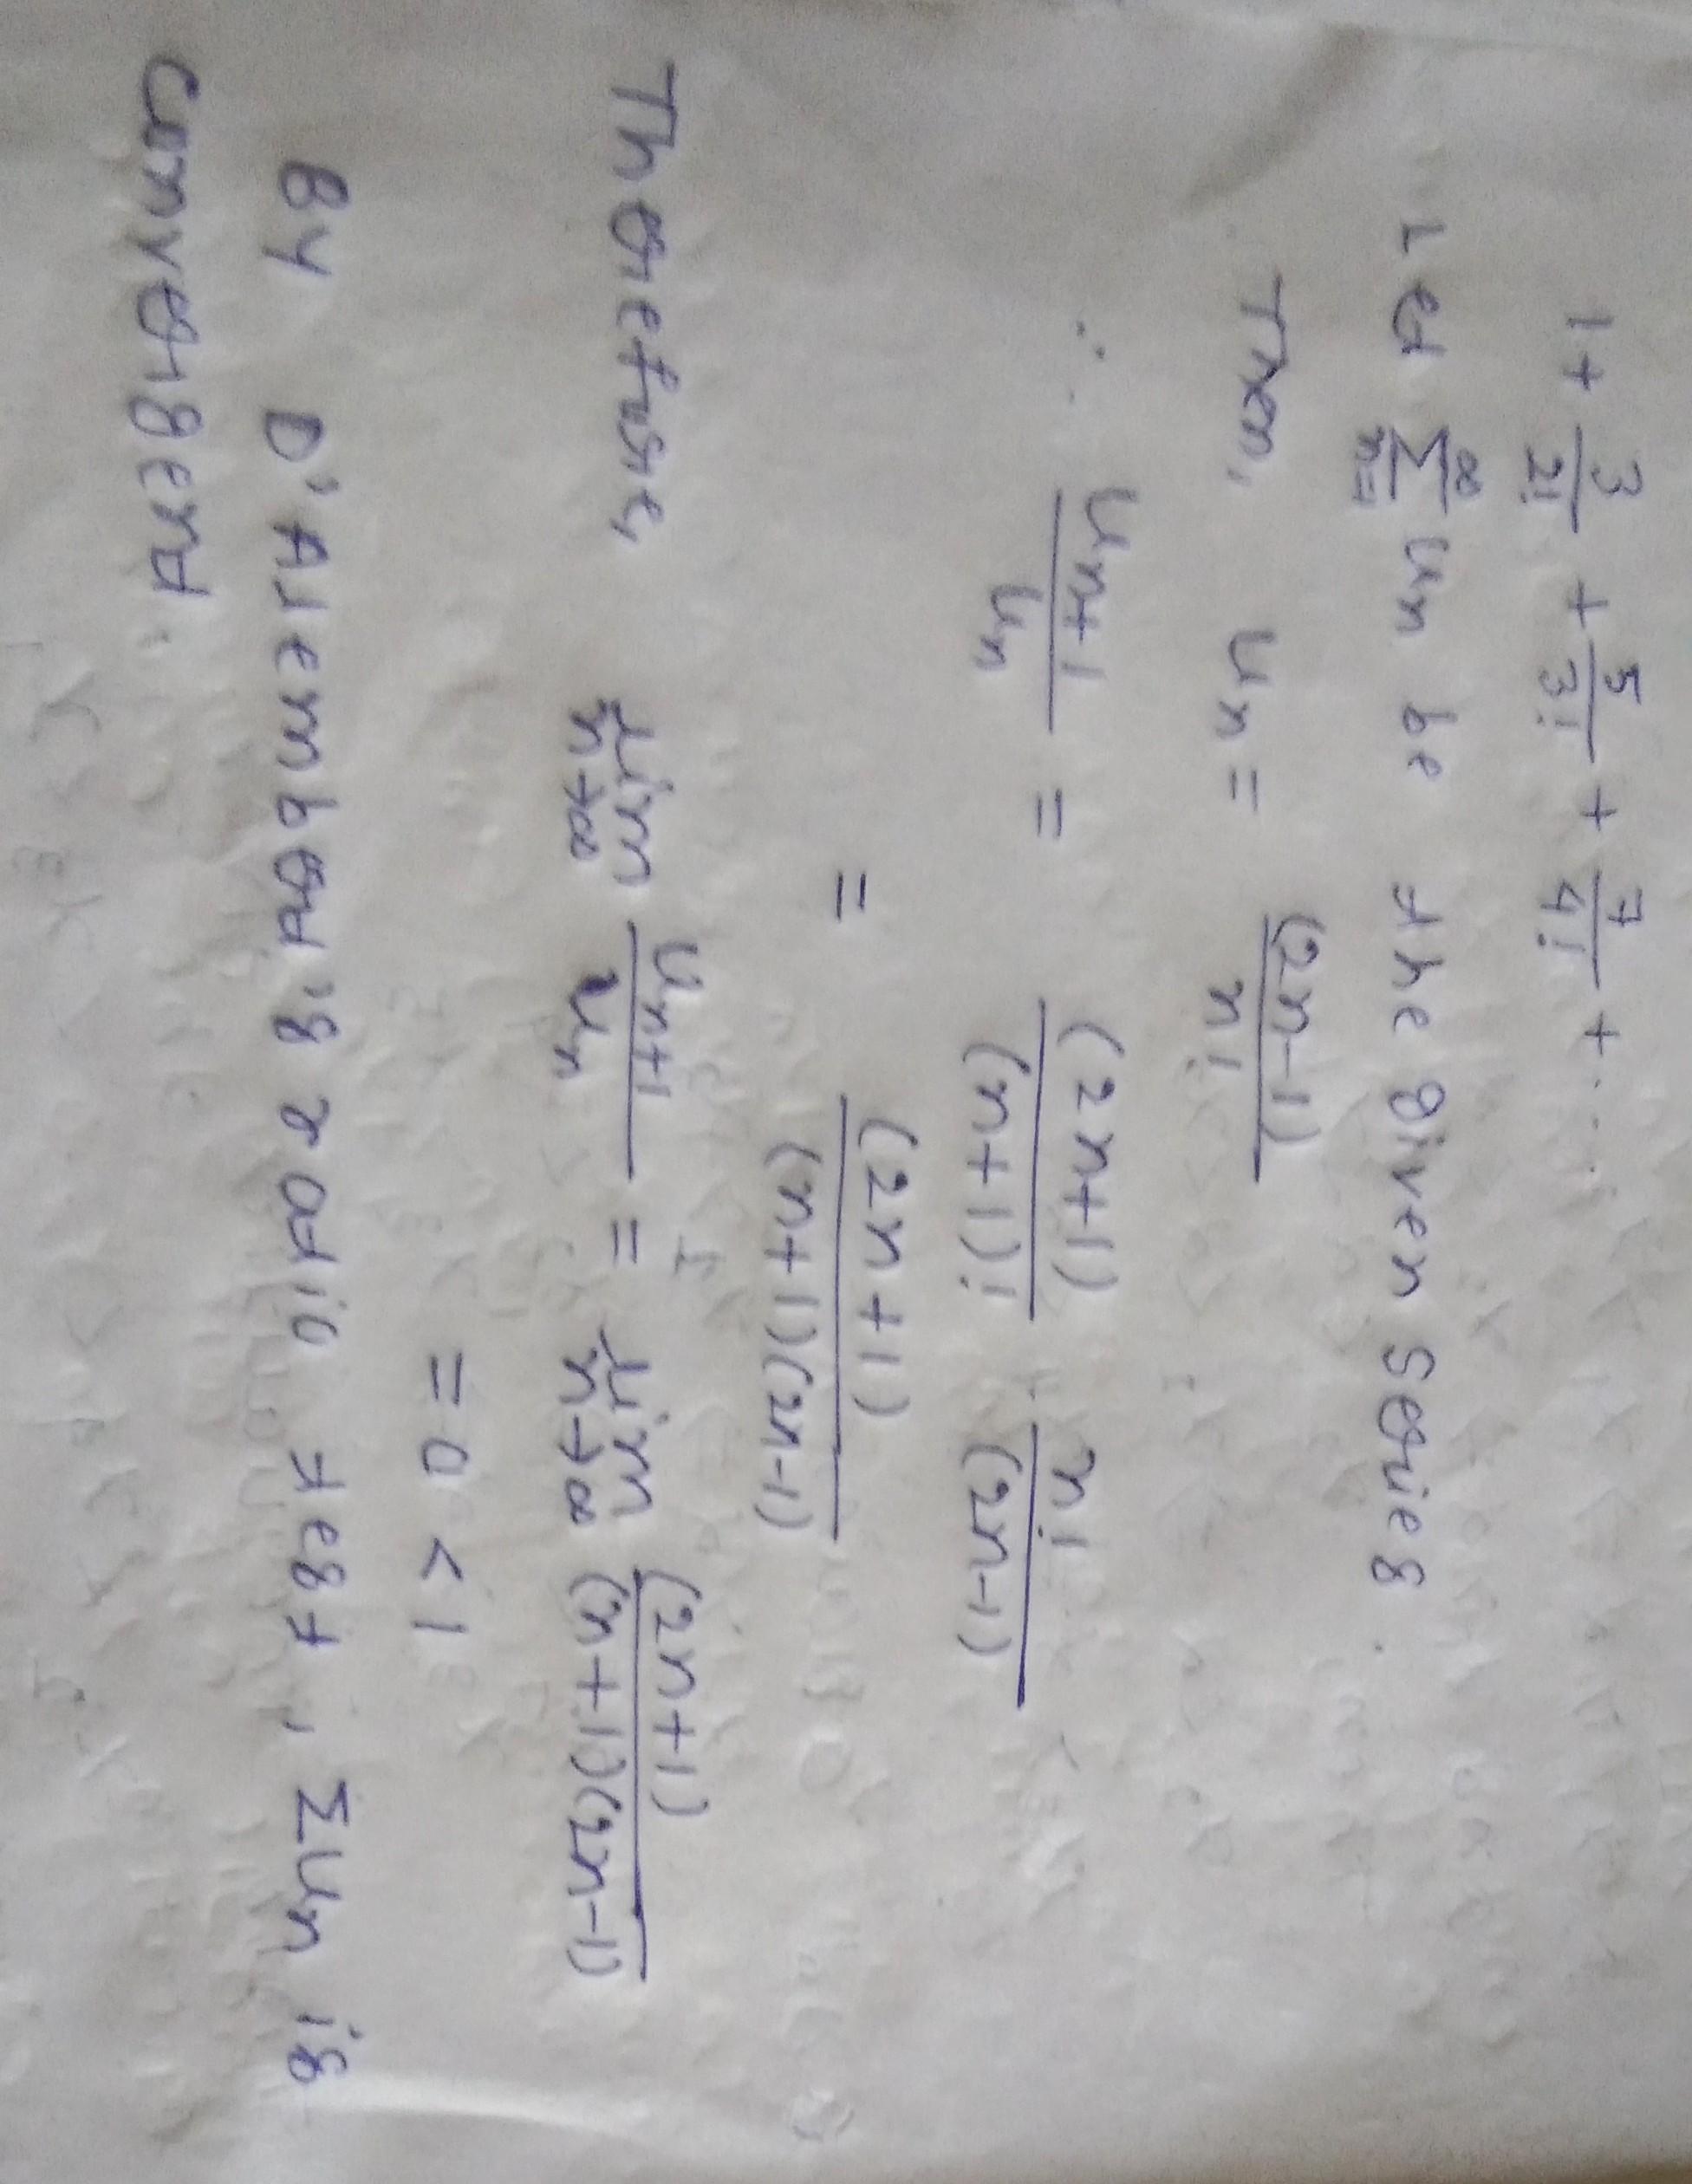 1 + 3/2! + 5/3! + 7/4! + ...
Let ∞∑n= un be the given series.
Then, un = (2n-1)/n!
∴ un+1/un = (2n+1)/(n+1)! n!/(2n-1)
= (2n+1)/(n+1)(2n-1)
Therefore, lim n→∞ un+1/un = lim n→∞ (2n+1)/(n+1)(2n-1)
= 0 < 1
By D'Alembert's ratio test, ∑un is
convergent.